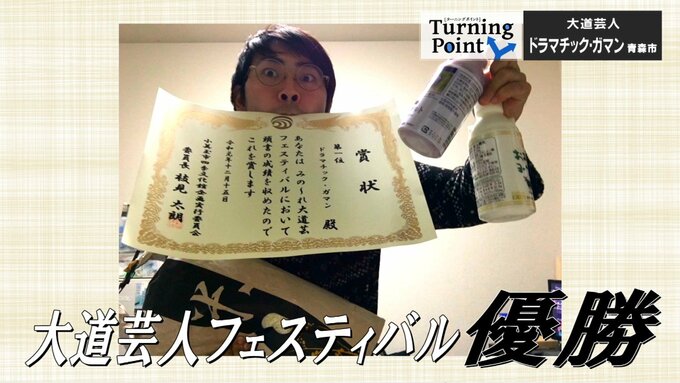 [ターニングポイント]
Turning
Point
大道芸人
ドラマチック・ガマン 青森市
賞状
第一位
ドラマチック・ガマン 殿
あなたは みの〜れ大道芸
フェスティバルにおいて
頭書の成績を収めたので
これを賞します
令和元年十二月十五日
小美玉市四季文化館企画実行委員会
委員長 太朗
大道芸人フェスティバル 優勝